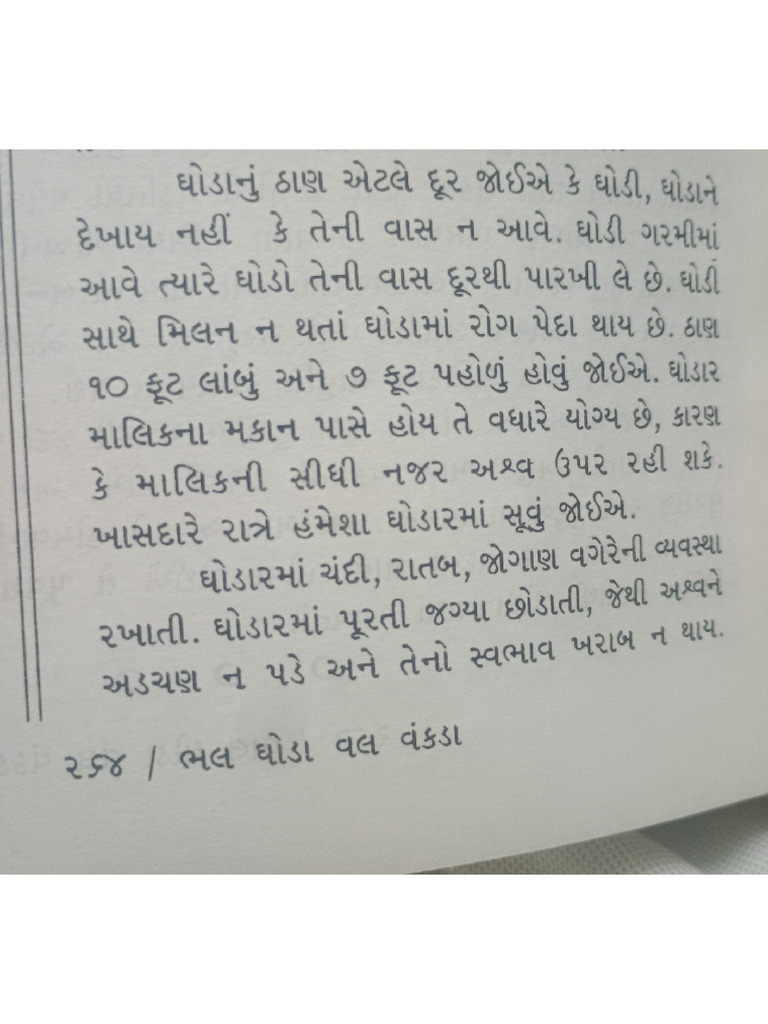 ઘોડાનું ઠાણ એટલે દૂર જોઈએ કે ઘોડી, ઘોડાને
દેખાય નહીં કે તેની વાસ ન આવે. ઘોડી ગરમીમાં
આવે ત્યારે ઘોડો તેની વાસ દૂરથી પારખી લે છે. ઘોડી
સાથે મિલન ન થતાં ઘોડામાં રોગ પેદા થાય છે. ઠાણ
૧૦ ફૂટ લાંબું અને ૭ ફૂટ પહોળું હોવું જોઈએ. ઘોડાર
માલિકના મકાન પાસે હોય તે વધારે યોગ્ય છે, કારણ
કે માલિકની સીધી નજર અશ્વ ઉપર રહી શકે.
ખાસદારે રાત્રે હંમેશા ઘોડારમાં સૂવું જોઈએ.
ઘોડારમાં ચંદી, રાતબ, જોગાણ વગેરેની વ્યવસ્થા
રખાતી. ઘોડારમાં પૂરતી જગ્યા છોડાતી, જેથી અશ્વને
અડચણ ન પડે અને તેનો સ્વભાવ ખરાબ ન થાય.
૨૬૪ / ભલ ઘોડા વલ વંકડા